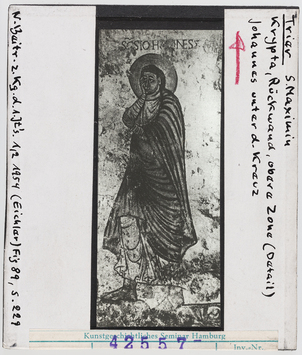 Trier S. Maximin
Krypta, Rückwand, obere Zone (Detail)
Johannes unter d. Kreuz
SCS IOHANNES
N. Beitr. z. Kg. d. 1. Jt's. 1/2 1954 (Eichler) Fig 89, S. 229
Kunstgeschichtliches Seminar Hamburg
42557
Inv.-Nr.